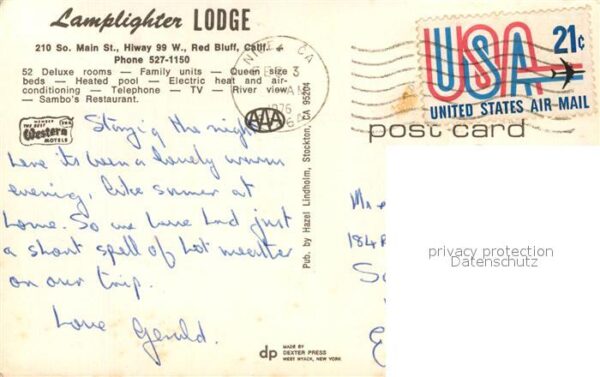 Lamplighter LODGE
210 So. Main St., Hiway 99 W., Red Bluff, Calif.
Phone 527-1150
52 Deluxe rooms — Family units — Queen size
beds — Heated pool — Electric heat and air-
conditioning — Telephone — TV — River view
— Sambo's Restaurant.
MEMBER
THE BEST
Western
MOTELS
AAA
CA
3
AM
1976
USA 21¢
UNITED STATES AIR MAIL
post card
Staying the night
here its been a lovely warm
evening, like summer at
home. So we have had just
a short spell of hot weather
on our trip.
Love Gerald.
Pub. by Hazel Lindholm, Stockton, CA 95204
184
privacy protection
Datenschutz
dp MADE BY
DEXTER PRESS
WEST NYACK, NEW YORK